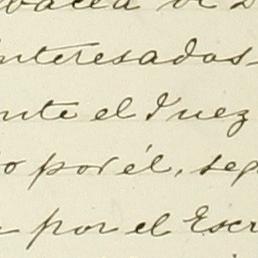 interesados
nte el Juez
o por él, seg
por el Escr